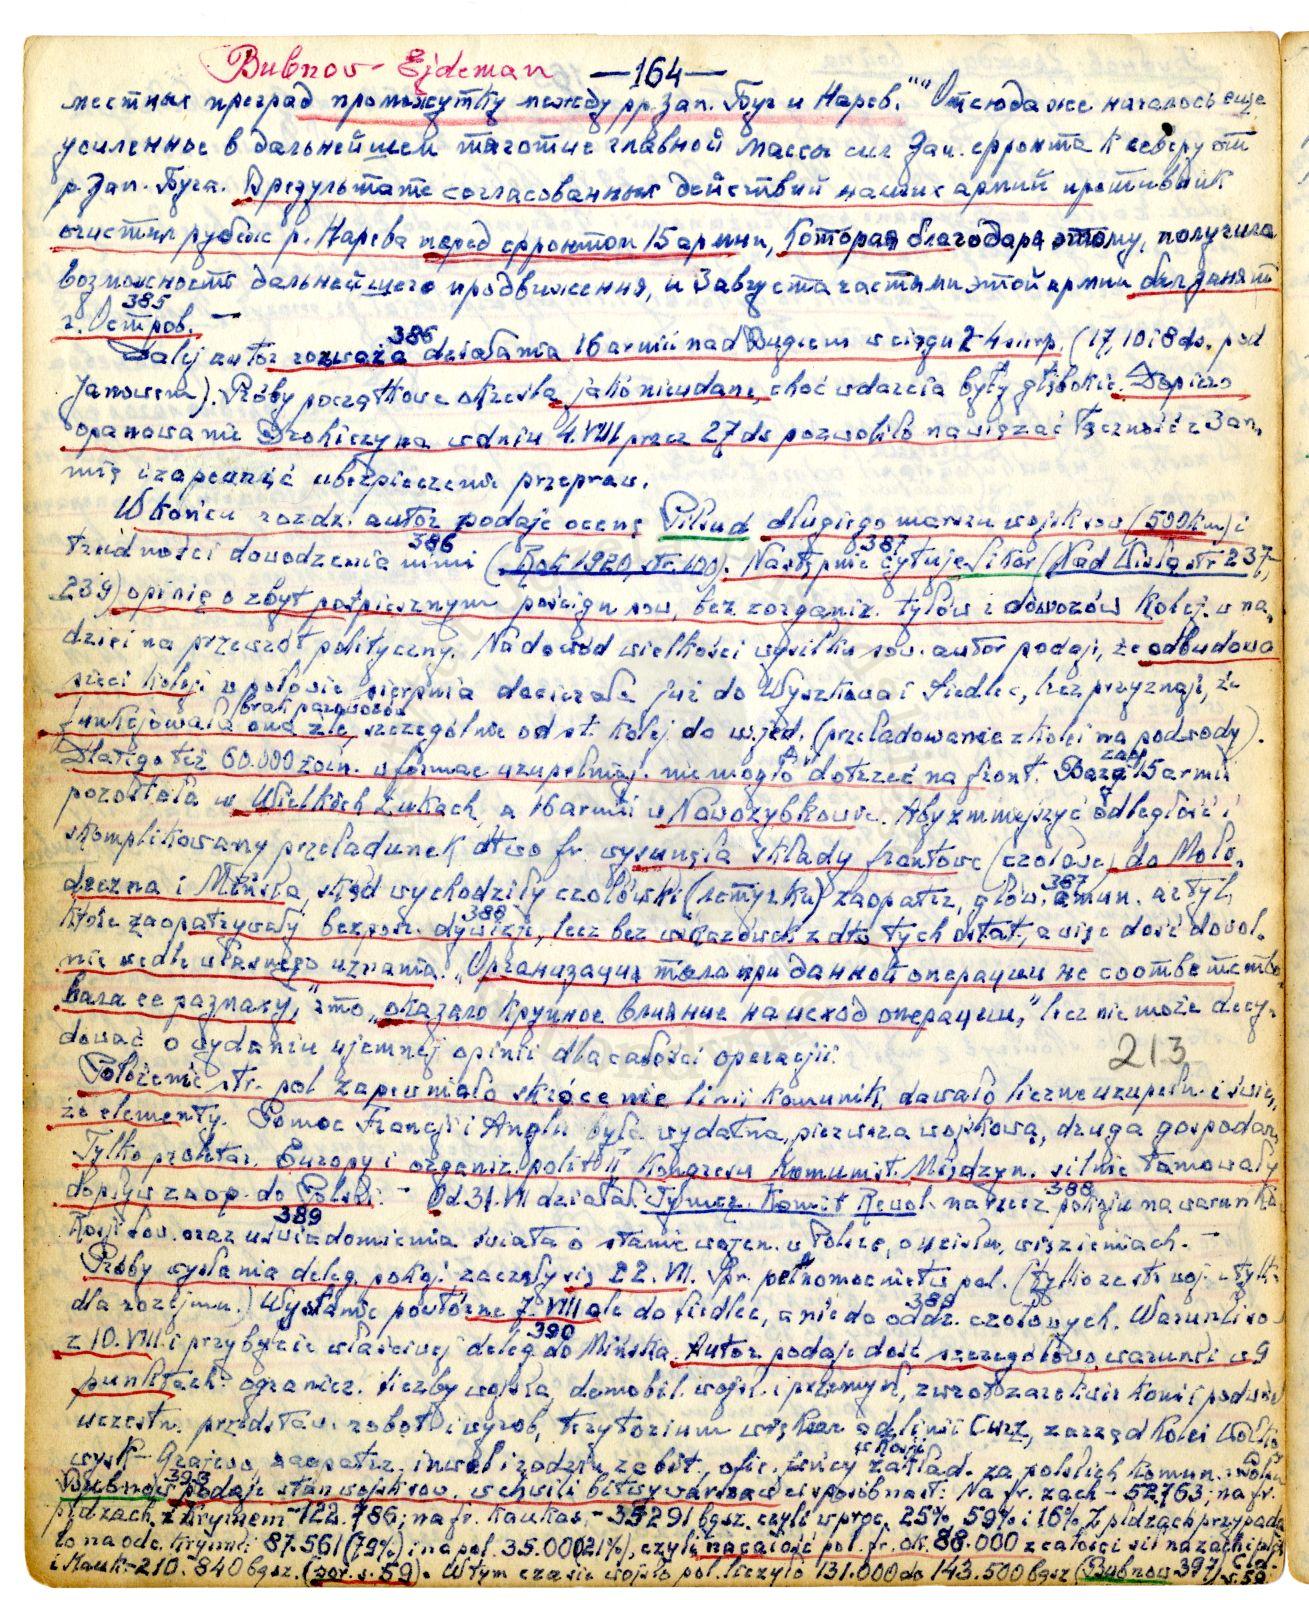 Bubnov - Ejdeman —164—
местных преград промежутку между рр. Зап. Буг и Нарев."" Отсюда же началось еще
усиленное в дальнейшем тяготие главной массы сил Зап. фронта к северу от
р. Зап. Буга. В результате согласованных действий наших армий противник
очистил рубеж р. Нарева перед фронтом 15 армии, которая благодаря этому, получила
возможность дальнейшего продвижения, и 3 августа частями этой армии был занят
385
г. Остров. —
386
Dalej autor rozważa działania 16 armii nad Bugiem w ciągu 2-4 sierp. (17, 10 i 8 ds. pod
Janowem). Próby początkowe określa jako nieudane, choć wdarcia były głębokie. Dopiero
opanowanie Drohiczyna w dniu 4.VIII przez 27 ds pozwoliło nawiązać łączność z 3 ar-
mią i zapewnić ubezpieczenie przepraw.
W końcu rozdz. autor podaje ocenę Piłsud długiego marszu wojsk sow. (500 km) i
386 387
trudności dowodzenia nimi (Rok 1920, str. 100). Następnie cytuje Sikor (Nad Wisłą str 237,
239) opinię o zbyt pośpiesznym pościgu sow, bez zorganiz. tyłów i dowozów kolej. w na-
dziei na przewrót polityczny. Na dowód wielkości wysiłku sow. autor podaje, że odbudowa
sieci kolej w połowie sierpnia docierała już do Wyszkowa i Siedlec, lecz przyznaje, że
brak parowozów
funkcjowała ona źle, szczególnie od st. kolej do w. jed. (przeładowanie z kolei na podwody).
Dlatego też 60.000 żołn. w formac uzupełniaj. nie mogło dotrzeć na front. Baza zaop 15 armii
pozostała w Wielkich Łukach, a 16 armii w Nowozybkowie. Aby zmniejszyć odległość i
skomplikowany przeładunek dtwo fr. wysunęła składy frontowe (czołowe) do Moło-
387
deczna i Mińska, skąd wychodziły czołówki (letuczki) zaopatrz, głów. amun. artyl,
388
które zaopatrywały bezpośr. dywizje, lecz bez wskazówek z dtw tych ostat, a więc dość dowol-
nie wedle własnego uznania. „Организация тыла при данной операции не соответство-
вала ее размаху," это „оказало крупное влияние на исход операции," lecz nie może decy-
dować o wydaniu ujemnej opinii dla całości operacji. 213
Położenie str. pol zapewniało skrócenie linij komunik, dawało liczne uzupełn. i świe-
że elementy. Pomoc Francji i Anglii była wydatna, pierwsza wojskową, druga gospodar.
Tylko proletar. Europy i organiz. polit II Kongresu Komunist. Międzyn. silnie tamowały
388
dopływ zaop. do Polski. — Od 31.VII działał Tymcz. Komit Rewol. na rzecz pokoju na warunka
389
Rosji sow. oraz uświadomienia świata o stanie wojen. w Polsce, o ucisku, więzieniach. —
Próby wysłania deleg. pokoj. zaczęły się 22.VII. Spr. pełnomocnictw pol. (tylko ze str woj. i tylko
389
dla rozejmu.) Wysłanie powtórne 7.VIII ale do Siedlec, a nie do oddz. czołowych. Warunki so
390
z 10.VIII i przybycie właściwej deleg do Mińska. Autor podaje dość szczegółowo warunki w 9
punktach: ogranicz. liczby wojska, demobil. wojsk. i przemysł, zwrot zarekwir koni i podwód
uczestn. przedstaw. robot. i wyrob, terytorium wzdłuż od linii Curz, zarząd kolei Wołko-
wysk-Grajewo, zaopatrz. inwal i rodzin zabit, ofic. jeńcy w Rosji zakład. za polskich komun.
393
Bubnow podaje stan wojsk sow. w chwili bitwy warszaw w sposób nast: Na fr. zach - 52.763; na fr.
płd zach z Krymem - 122.786; na fr. Kaukas. - 35291 bgsz. czyli w proc. 25%, 59% i 16%. Z płdzach przypada-
ło na odc. Krymu: 87.561 (79%) i na pol. 35.000 (21%), czyli na całość pol. fr. ok. 88.000 z całości sił na zach i płdz
i Kauk - 210.840 bgsz. (por. s. 59). W tym czasie wojsko pol. liczyło 131.000 do 143.500 bgsz (Bubnow 397) s. 59